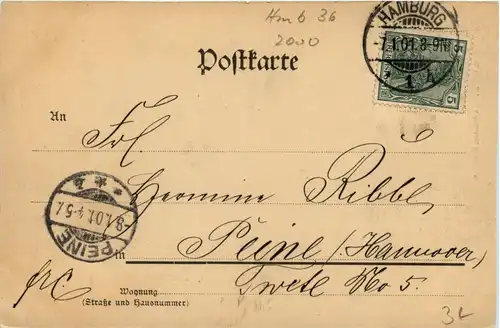 Hmb 36
2000
HAMBURG
7.1.01.8-9N
* 1 A
5 5
Postkarte
An
Frl.
Hermine Ribbe
PEINE
8.1.01.4-5
in Peine / (Hannover)
frc.
Twete No 5.
Wohnung
(Straße und Hausnummer)